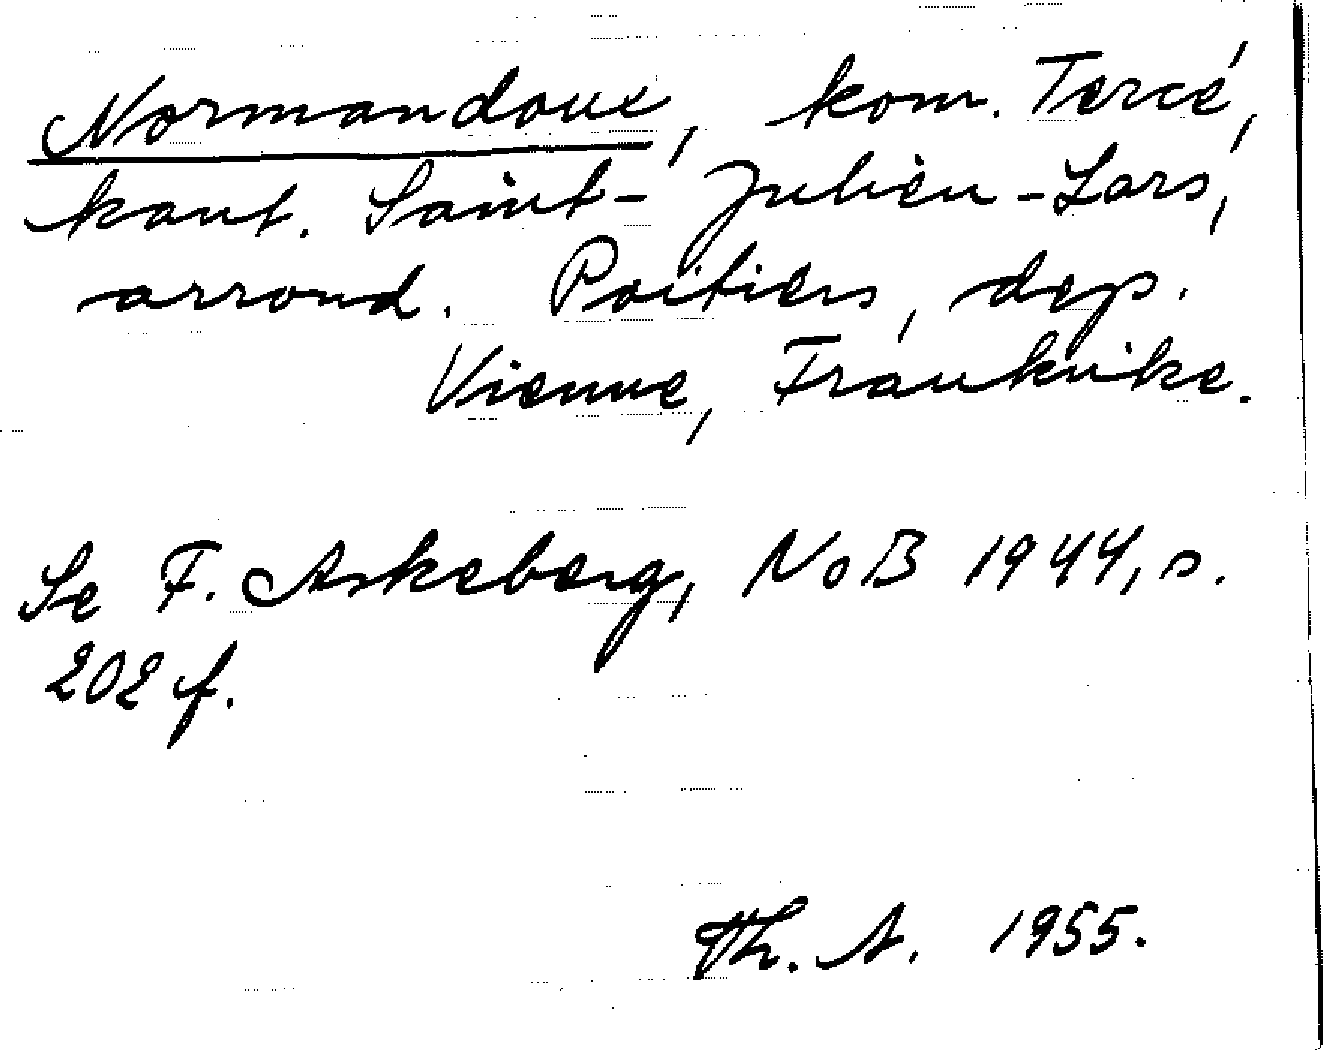 Normandoux, kom. Tercé,
kant. Saint-Julien-Lars,
arrond. Poitiers, dep.
Vienne, Frankrike.
Se F. Askeberg, NoB 1944, s.
202 f.
Th. A. 1955.